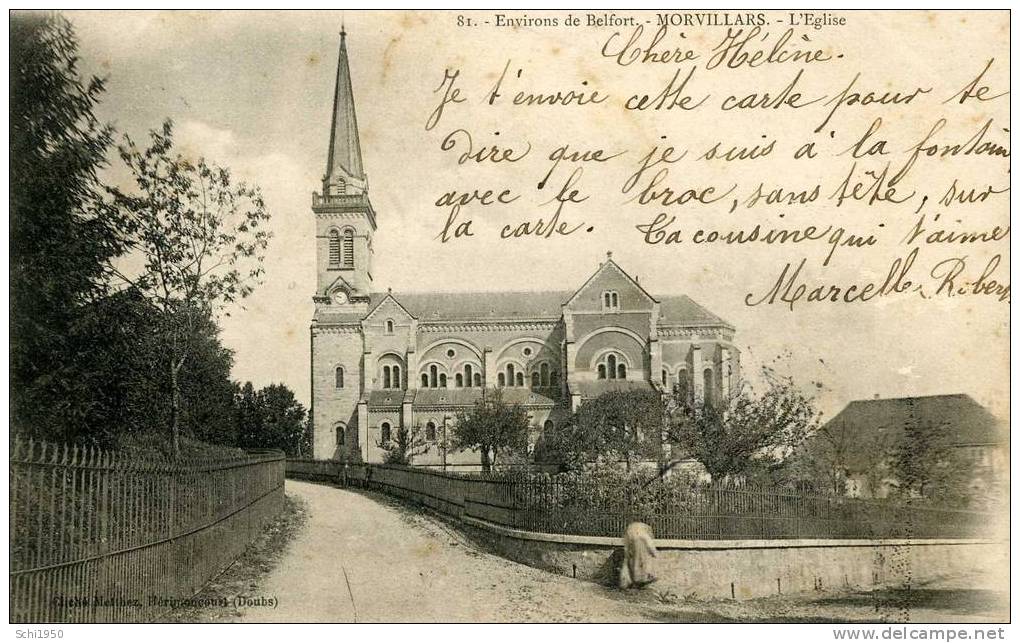 81. - Environs de Belfort. - MORVILLARS. - L'Eglise
Chère Hélène.
Je t'envoie cette carte pour te
dire que je suis à la fontain
avec le broc, sans tête, sur
la carte. Ta cousine qui t'aime
Marcelle Robert
Cliché Metthez, Hérimoncourt (Doubs)
Schi1950
www.delcampe.net